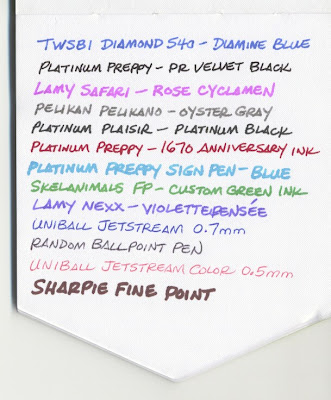 TWSBI DIAMOND 540 - DIAMINE BLUE
PLATINUM PREPPY - PR VELVET BLACK
LAMY SAFARI - ROSE CYCLAMEN
PELIKAN PELIKANO - OYSTER GRAY
PLATINUM PLAISIR - PLATINUM BLACK
PLATINUM PREPPY - 1670 ANNIVERSARY INK
PLATINUM PREPPY SIGN PEN - BLUE
SKELANIMALS FP - CUSTOM GREEN INK
LAMY NEXX - VIOLETTE PENSÉE
UNIBALL JETSTREAM 0.7mm
RANDOM BALLPOINT PEN
UNIBALL JETSTREAM COLOR 0.5mm
SHARPIE FINE POINT